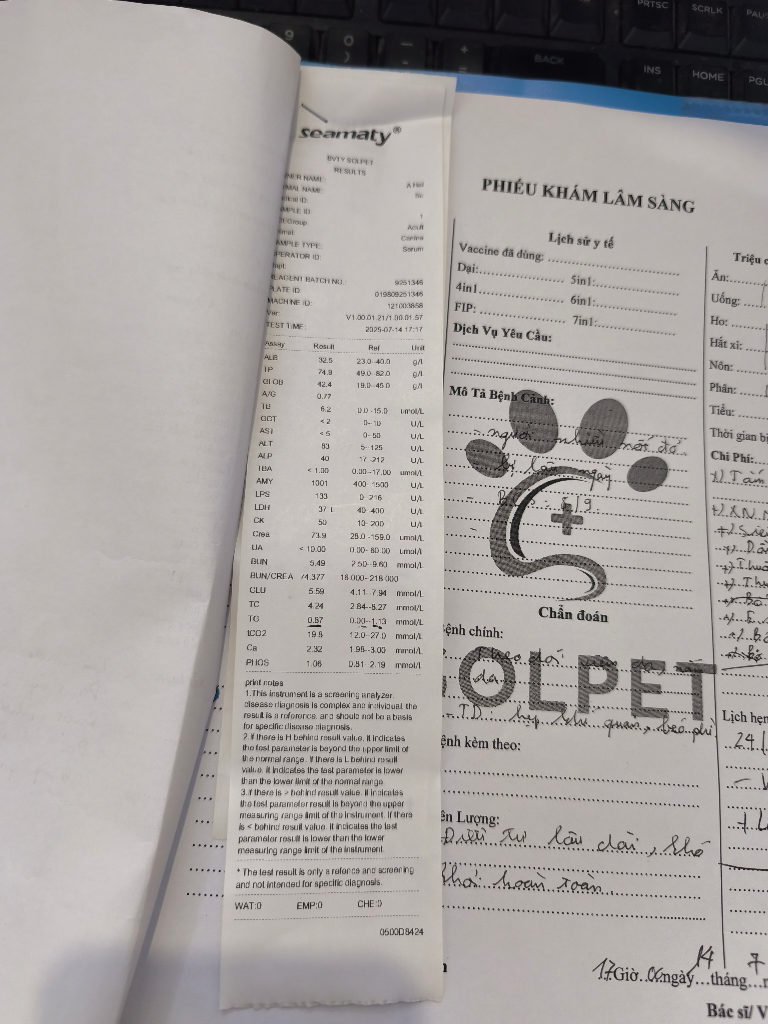 PRTSC
SCRLK
BACK
INS
HOME
seamaty®
BVTY SOLPET
RESULTS
Adult
Canine
SAMPLE TYPE: Serum
OPERATOR ID:
REAGENT BATCH NO.: 9251346
PLATE ID: 019809251346
MACHINE ID:
Ver: V1.00.01.21/1.00.01.57
TEST TIME: 2025-07-14 17:17
Assay Result Ref Unit
ALB 32.5 23.0--40.0 g/l
TP 74.9 49.0--82.0 g/l
GLOB 42.4 19.0--45.0 g/l
A/G 0.77
TB 6.2 0.0--15.0 umol/L
GGT < 2 0--10 U/L
AST < 5 0--50 U/L
ALT 83 5--125 U/L
ALP 40 17--212 U/L
TBA < 1.00 0.00--17.00 umol/L
AMY 1001 400--1500 U/L
LPS 133 0--216 U/L
LDH 37 L 40--400 U/L
CK 50 10--200 U/L
Crea 73.9 28.0--159.0 umol/L
UA < 10.00 0.00--60.00 umol/L
BUN 5.49 2.50--9.60 mmol/L
BUN/CREA 74.377 16.000--218.000
GLU 5.59 4.11--7.94 mmol/L
TC 4.24 2.84--8.27 mmol/L
TG 0.87 0.00--1.13 mmol/L
tCO2 19.8 12.0--27.0 mmol/L
Ca 2.32 1.98--3.00 mmol/L
PHOS 1.06 0.81--2.19 mmol/L
print notes
1.This instrument is a screening analyzer,
disease diagnosis is complex and individual, the
result is a reference, and should not be a basis
for specific disease diagnosis.
2.If there is H behind result value, it indicates
the test parameter is beyond the upper limit of
the normal range. If there is L behind result
value, it indicates the test parameter is lower
than the lower limit of the normal range.
3.If there is > behind result value, it indicates
the test parameter result is beyond the upper
measuring range limit of the instrument. If there
is < behind result value, it indicates the test
parameter result is lower than the lower
measuring range limit of the instrument.
* The test result is only a refence and screening
and not intended for specific diagnosis.
WAT:0 EMP:0 CHE:0
0500D8424
PHIẾU KHÁM LÂM SÀNG
Lịch sử y tế
Vaccine đã dùng:
Dại: 5in1:
4in1 6in1:
FIP: 7in1:
Dịch Vụ Yêu Cầu:
Mô Tả Bệnh Cảnh:
- BCS: 6/9
Chẩn đoán
OLPET
Bệnh chính:
Theo dõi
da
- TD: hẹp khí quản, béo phì
Bệnh kèm theo:
Tiên Lượng:
Điều trị lâu dài, khó
khỏi hoàn toàn.
17 Giờ 00 ngày 14 tháng 7
Bác sĩ/
Triệu
Ăn:
Uống:
Ho:
Hắt xì:
Nôn:
Phân:
Tiểu:
Thời gian
Chi Phí:
Lịch hẹn
24/